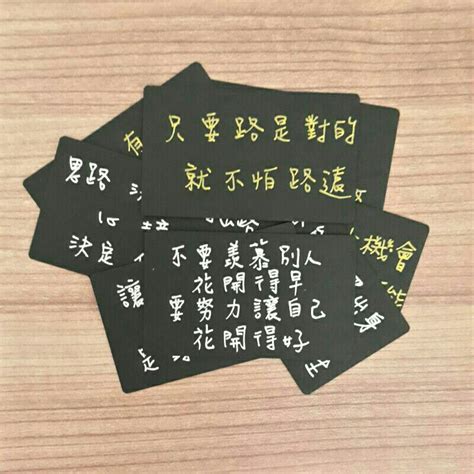 只要路是對的
就不怕路遠
不要羨慕別人
花開得早
要努力讓自己
花開得好
有
思路
決定
讓
機會
出身